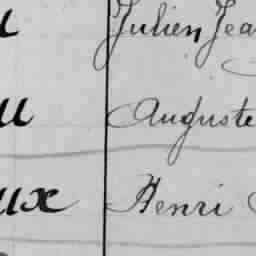 u Julien Jea
u Auguste
ux Henri